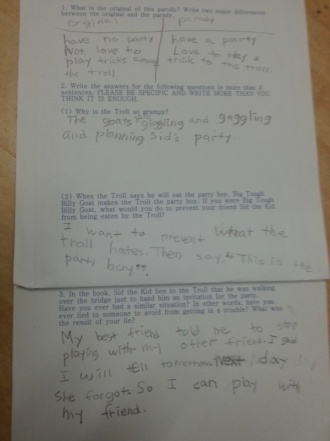 1. What is the original of this parody? Write two major differences
between the original and the parody.
original parody
have no party have a party
Not love to Love to play a
play tricks among trick to the troll.
the troll.
2. Write the answers for the following questions in more than 3
sentences. PLEASE BE SPECIFIC AND WRITE MORE THAN YOU
THINK IT IS ENOUGH.
(1) Why is the Troll so grumpy?
The goats giggling and gaggling
and planning Sid's party.
(2) When the Troll says he will eat the party boy, Big Tough
Billy Goat makes the Troll the party boy. If you were Big Tough
Billy Goat, what would you do to prevent your friend Sid the Kid
from being eaten by the Troll?
I want to present what the
troll hates. Then say, "This is the
party boy".
3. In the book, Sid the Kid lies to the Troll that he was walking
over the bridge just to hand him an invitation for the party.
Have you ever had a similar situation? In other words, have you
ever lied to someone to avoid from getting in a trouble? What was
the result of your lie?
My best friend told me to stop
playing with my otter friend. I said
I will tell tomorrow. day
she forgot. So I can play with
my friend.